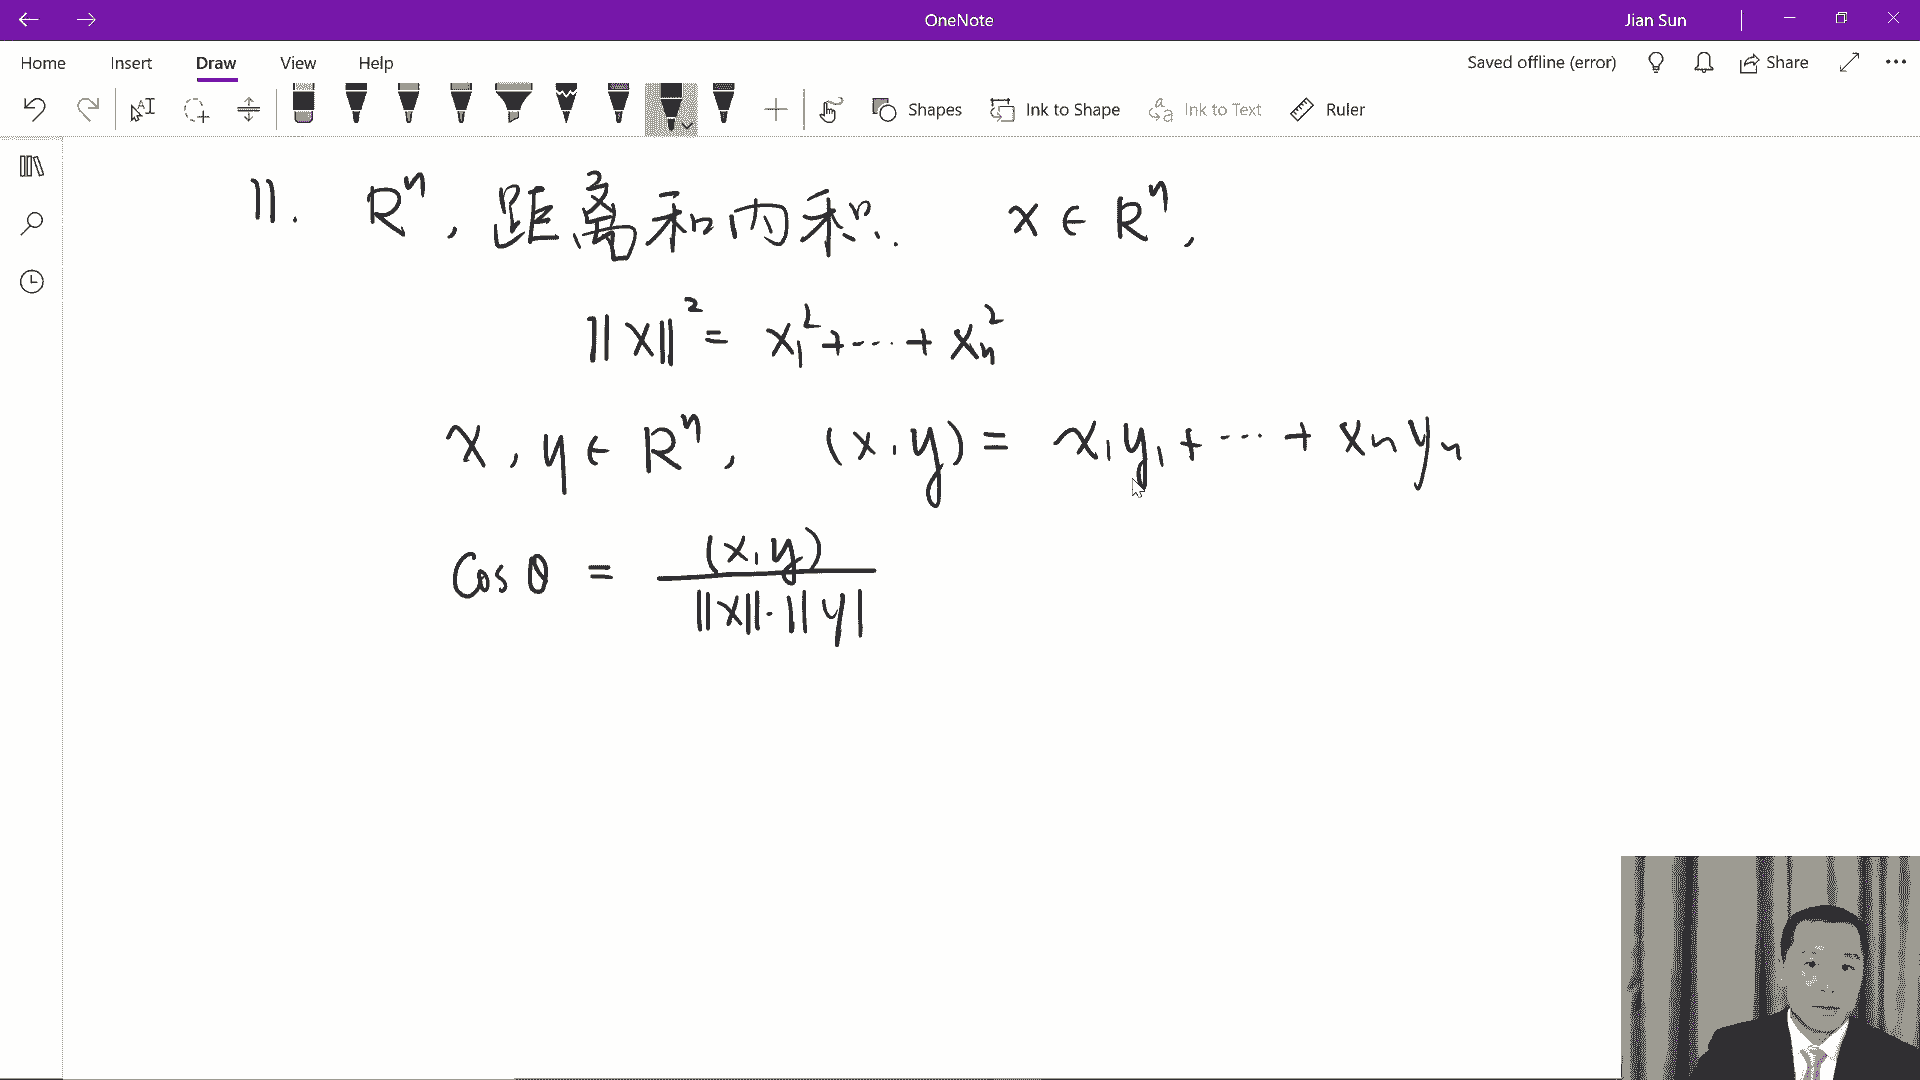 OneNote
Jian Sun
Home Insert Draw View Help
Saved offline (error) Share
Shapes Ink to Shape Ink to Text Ruler
11. Rⁿ, 距离和内积. x ∈ Rⁿ,
||x||² = x₁² + ··· + xₙ²
x, y ∈ Rⁿ, (x, y) = x₁y₁ + ··· + xₙyₙ
Cos θ = (x, y)
||x||·||y|